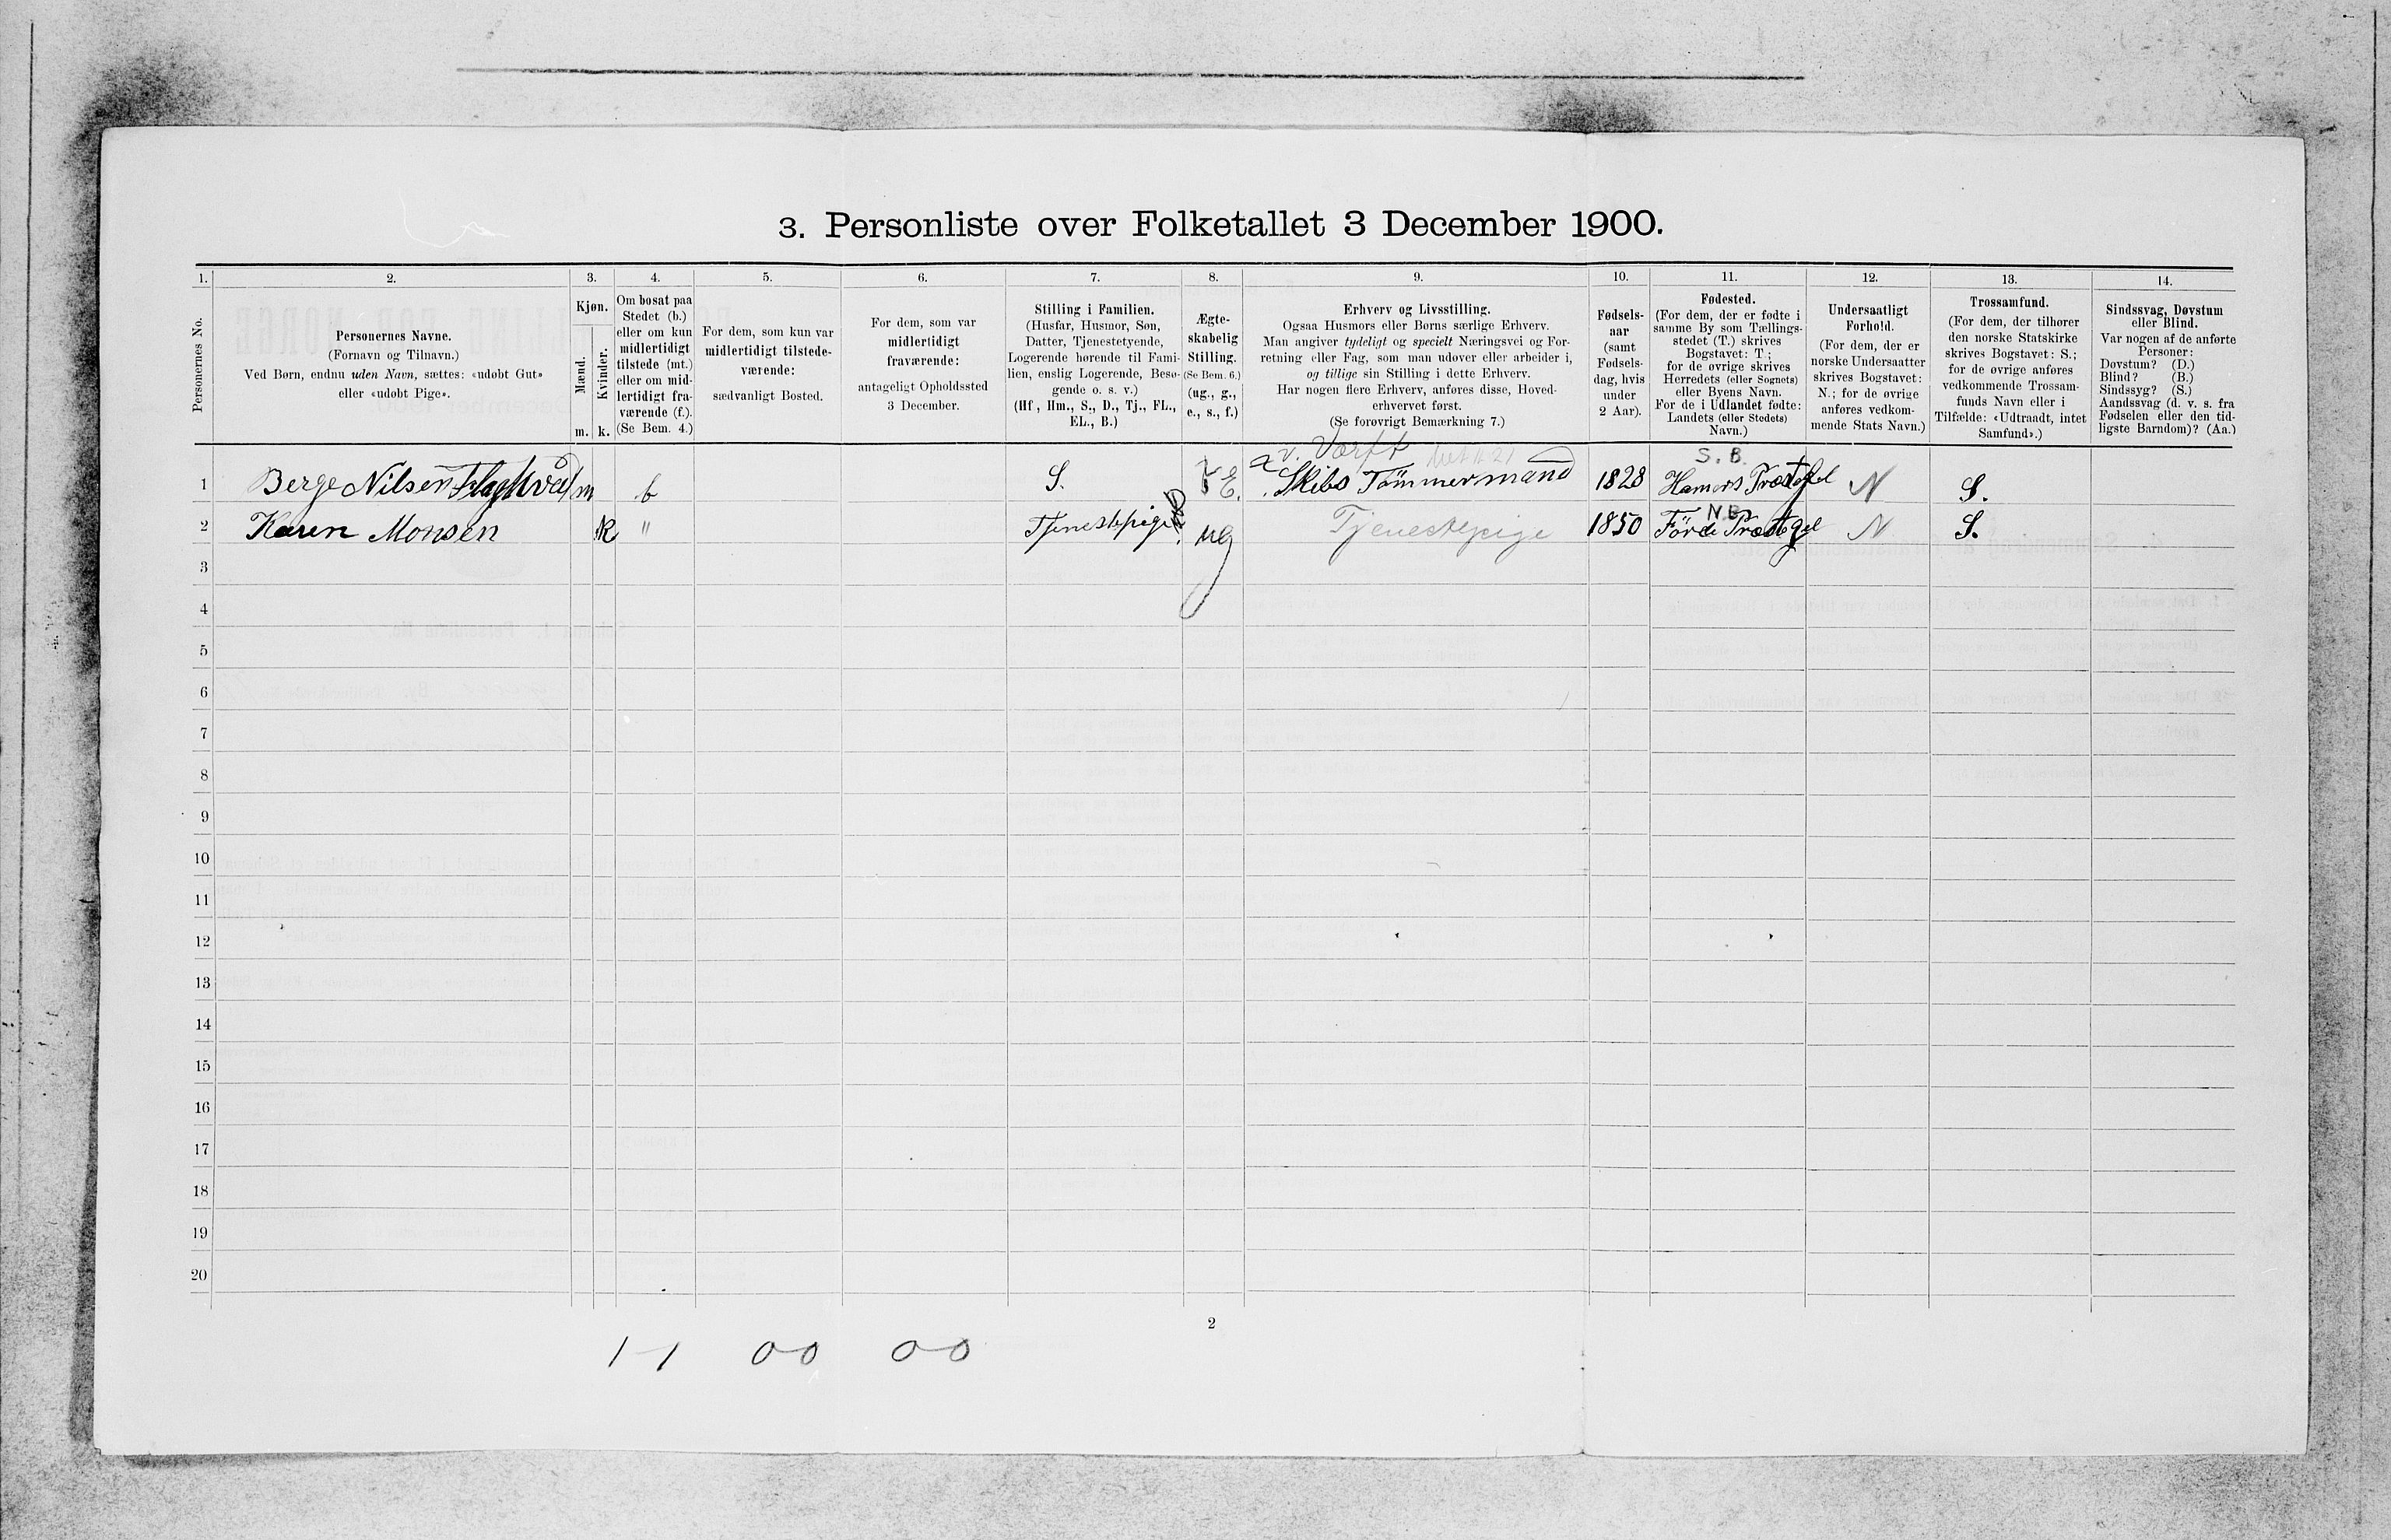 3. Personliste over Folketallet 3 December 1900.
1. 2. 3. 4. 5. 6. 7. 8. 9. 10. 11. 12. 13. 14.
Personernes No.
Personernes Navne.
(Fornavn og Tilnavn.)
Ved Børn, endnu uden Navn, sættes: «udøbt Gut»
eller «udøbt Pige».
Kjøn.
Mænd.
Kvinder.
m. k.
Om bosat paa
Stedet (b.)
eller om kun
midlertidigt
tilstede (mt.)
eller om mid-
lertidigt fra-
værende (f.).
(Se Bem. 4.)
For dem, som kun var
midlertidigt tilstede-
værende:
sædvanligt Bosted.
For dem, som var
midlertidigt
fraværende:
antageligt Opholdssted
3 December.
Stilling i Familien.
(Husfar, Husmor, Søn,
Datter, Tjenestetyende,
Logerende hørende til Fami-
lien, enslig Logerende, Besø-
gende o. s. v.)
(Hf., Hm., S., D., Tj., FL.,
EL., B.)
Ægte-
skabelig
Stilling.
(Se Bem. 6.)
(ug., g.,
e., s., f.)
Erhverv og Livsstilling.
Ogsaa Husmors eller Børns særlige Erhverv.
Man angiver tydeligt og specielt Næringsvei og For-
retning eller Fag, som man udover eller arbeider i,
og tillige sin Stilling i dette Erhverv.
Har nogen flere Erhverv, anføres disse, Hoved-
erhvervet først.
(Se forøvrigt Bemærkning 7.)
Fødsels-
aar
(samt
Fødsels-
dag, hvis
under
2 Aar).
Fødested.
(For dem, der er fødte i
samme By som Tællings-
stedet (T.) skrives
Bogstavet: T.;
for de øvrige skrives
Herredets (eller Sognets)
eller Byens Navn.
For de i Udlandet fødte:
Landets (eller Stedets)
Navn.)
Undersaatligt
Forhold.
(For dem, der er
norske Undersaatter
skrives Bogstavet:
N.; for de øvrige
anføres vedkom-
mende Stats Navn.)
Trossamfund.
(For dem, der tilhører
den norske Statskirke
skrives Bogstavet: S.;
for de øvrige anføres
vedkommende Trossam-
funds Navn eller i
Tilfælde: «Udtraadt, intet
Samfund».)
Sindssvag, Døvstum
eller Blind.
Var nogen af de anførte
Personer:
Døvstum? (D.)
Blind? (B.)
Sindssyg? (S.)
Aandssvag (d. v. s. fra
Fødselen eller den tid-
ligste Barndom)? (Aa.)
v. Værft S. B.
1 Berge Nilsen m b S. E. Skibs Tömmermand 1828 Hamers Præstegel N S.
N B
2 Karen Monsen k " Tjenestepige ug Tjenestepige 1850 Förde Præstegel N S.
3
4
5
6
7
8
9
10
11
12
13
14
15
16
17
18
19
20
2
1-1 00 00